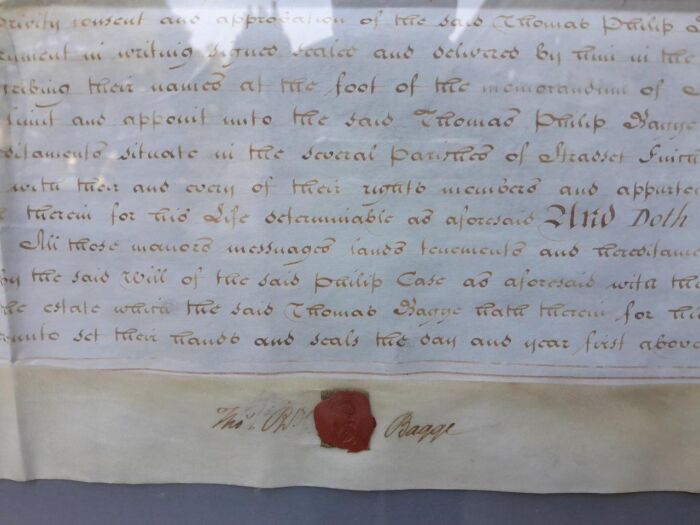 privity consent and approbation of the said Thomas Philip
in writing signed sealed and delivered by him in the
their names at the foot of the memorandum of
limit and appoint unto the said Thomas Philip Bagge
situate in the several parishes of Strasset
with their and every of their rights members and
therein for his Life determinable as aforesaid And Doth
All those manors messuages lands tenements and
by the said Will of the said Philip Case as aforesaid with the
the estate which the said Thomas Bagge hath therein for
set their hands and seals the day and year first above
Thos. Bagge